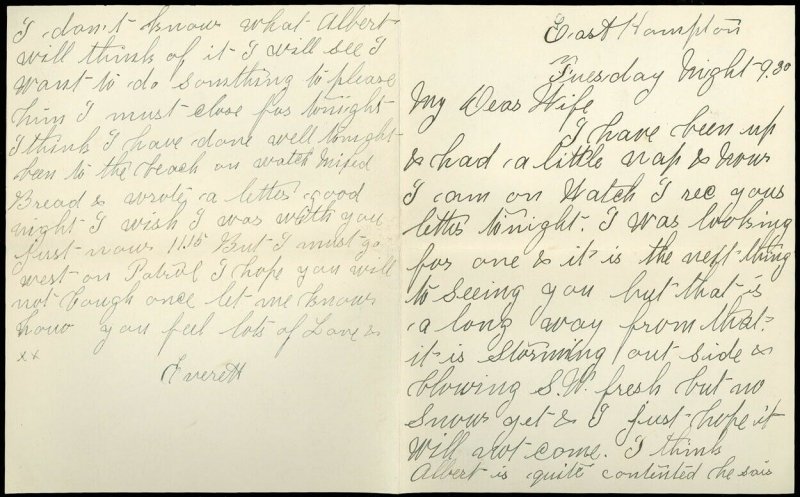 East Hampton
Tuesday Night 9.30
My Dear Wife
I have been up
& had a little nap & now
I am on Watch I rec your
letter tonight. I was looking
for one & it is the next thing
to seeing you but that is
a long way from that.
it is Storming out side &
blowing S.W. fresh but no
Snow yet & I just hope it
Will not come. I think
Albert is quite contented he sais
I don't know what Albert
will think of it I will see I
want to do somthing to please
him I must close for tonight
I think I have done well tonight
been to the beach on watch Mixed
Bread & wrote a letter good
night I wish I was with you
just now 11.15 But I must go
west on Patrol I hope you will
not cough once let me know
how you feel lots of Love &
xx
Everett